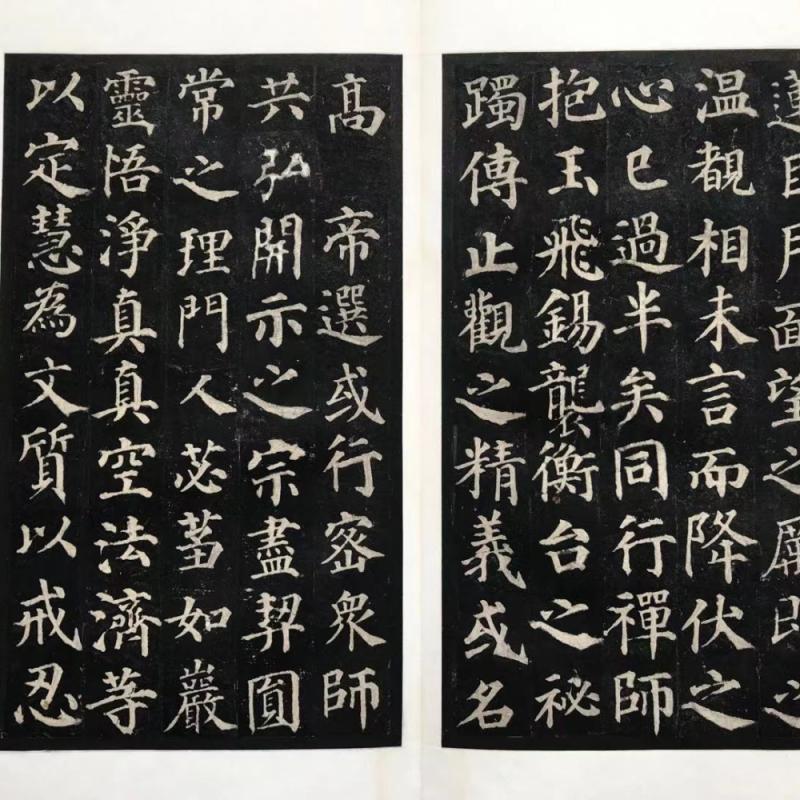 蓮目月面望之厲即之
温覩相未言而降伏之
心已過半矣同行禪師
抱玉飛錫襲衡台之祕
躅傳止觀之精義或名
高　帝選或行密衆師
共弘開示之宗盡契圓
常之理門人苾蒭如巖
靈悟淨真真空法濟等
以定慧為文質以戒忍